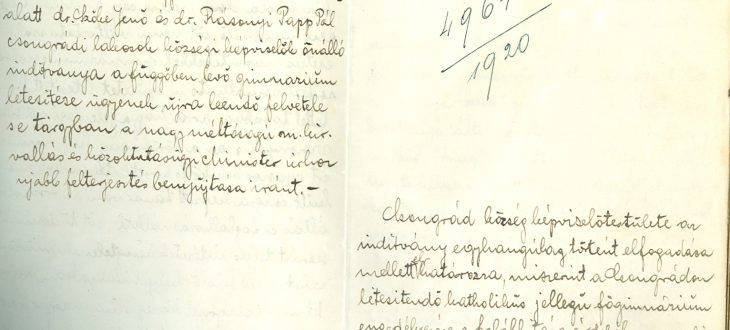 alatt dr. Csőke Jenő és dr. Rasonyi Papp Pál
csongrádi lakosok községi képviselők önálló
inditványa a függőben levő gimnarium
létesitése ügyének újra leendő felvétele
s e tárgyban a nagyméltóságú m. kir.
vallás és közoktatásügyi Minister úrhoz
ujabb felterjesztés benyújtása iránt. –
1920
Csongrád község képviselőtestülete az
inditvány egyhangúlag történt elfogadása
mellett határozza, miszerint a Csongrádon
létesitendő katholikus jellegű főgimnárium